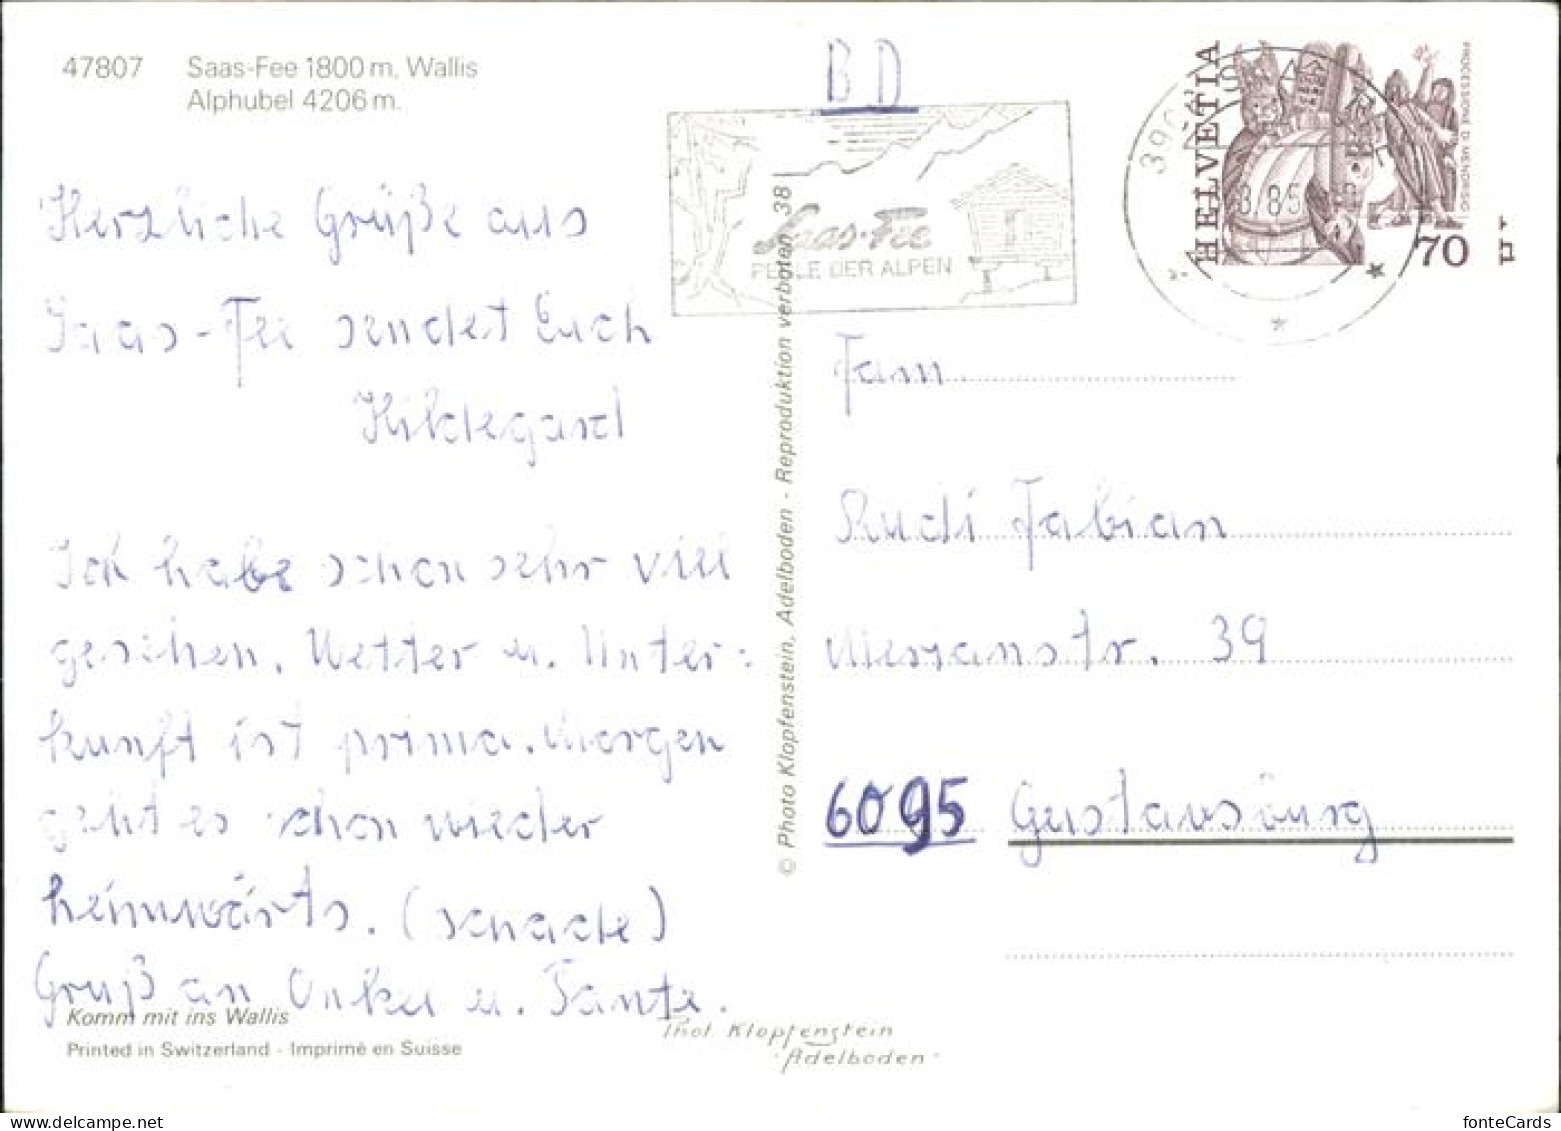 47807 Saas-Fee 1800 m, Wallis
Alphubel 4206 m.
BD
Saas-Fee
PERLE DER ALPEN
HELVETIA
PROCESSIONE DI MENDRISIO
70
8/85
Herzliche Grüße aus
Saas-Fee sendet Euch
Hildegard
Ich habe schon sehr viel
gesehen. Wetter u. Unter-
kunft ist prima. Morgen
geht es schon wieder
heimwärts. (schade)
Gruß an Onkel u. Tante.
Komm mit ins Wallis
Printed in Switzerland - Imprimé en Suisse
© Photo Klopfenstein, Adelboden - Reproduktion verboten 38
Fam
Rudi Fabian
Merianstr. 39
6095 Gustavsburg
Phot. Klopfenstein
Adelboden
fonteCards